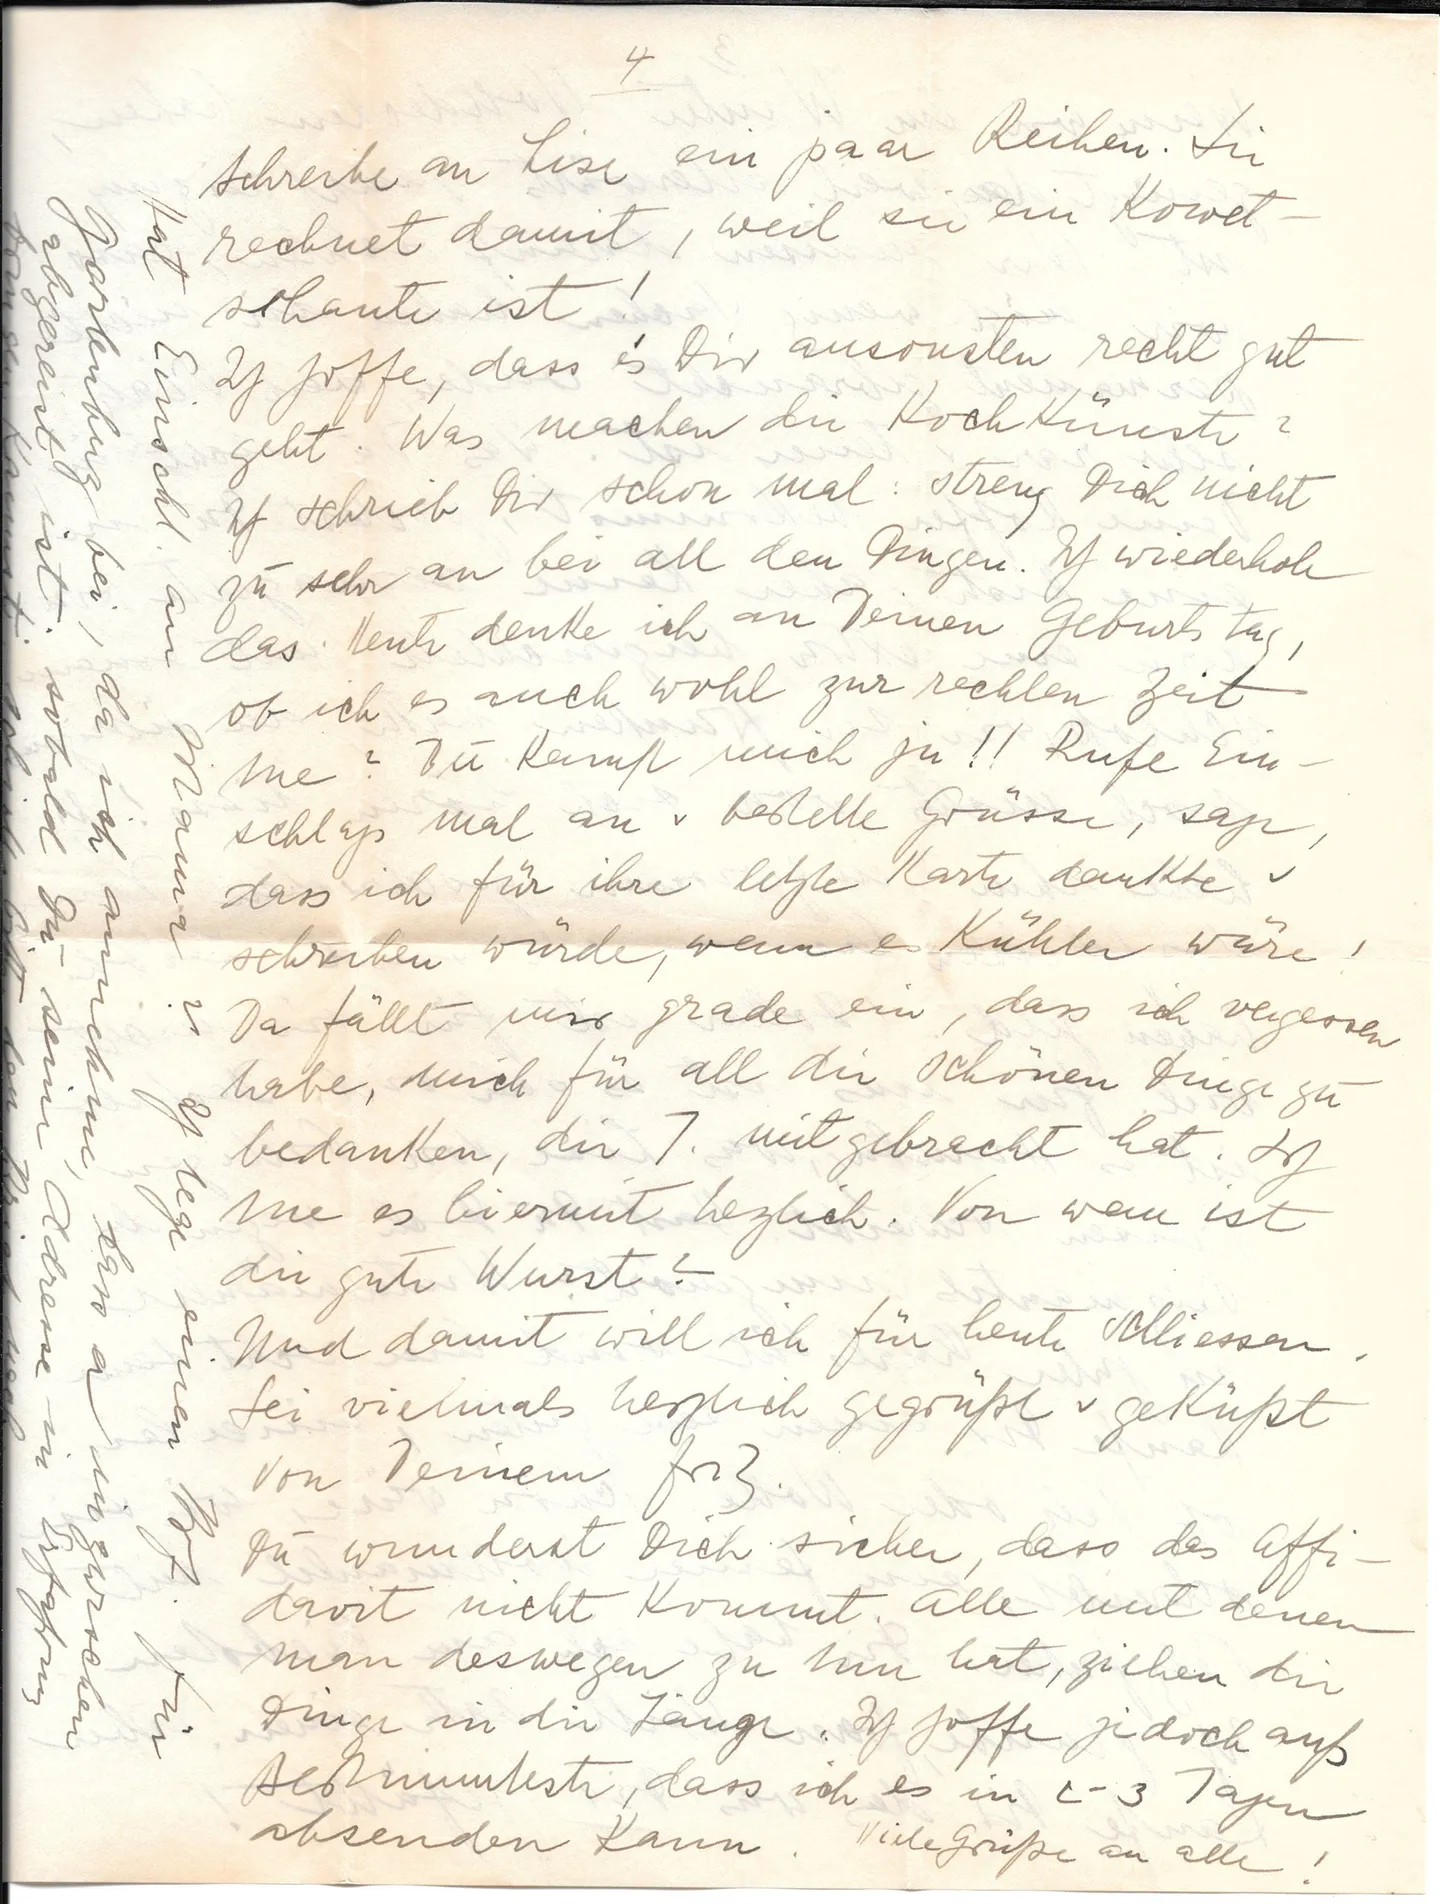 4
schreibe an Lise ein paar Reihen. Sie
rechnet damit, weil sie ein
ist!
Ich hoffe, dass es Dir ansonsten recht gut
geht. Was machen die Kochkünste?
Ich schrieb Dir schon mal: streng Dich nicht
zu sehr an bei all den Dingen. Ich wiederhole
das. Heute denke ich an Deinen Geburtstag,
ob ich es auch wohl zur rechten Zeit
tue? Du kennst mich ja!! Rufe Ein-
schlags mal an u bestelle Grüsse, sage,
dass ich für ihre letzte Karte dankte u
schreiben würde, wenn es kühler wäre!
Da fällt mir grade ein, dass ich vergessen
habe, mich für all die schönen Dinge zu
bedanken, die T. mitgebracht hat. Ich
tue es hiermit herzlich. Von wem ist
die gute Wurst?
Und damit will ich für heute schliessen.
Sei vielmals herzlich gegrüßt u geküßt
von Deinem Fritz.
Du wunderst Dich sicher, dass das Affi-
davit nicht kommt. Alle mit denen
man deswegen zu tun hat, ziehen die
Dinge in die Länge. Ich hoffe jedoch aufs
bestimmteste, dass ich es in 2-3 Tagen
absenden kann. Viele Grüße an alle!
Hat Einschl. an Mama Ich lege einen Brf. für
Gartenburg bei, da ich annehme, dass er inzwischen
abgereist ist. Sobald Du seine Adresse in Erfahrung
bringen kannst, schick bitte den Brief nach